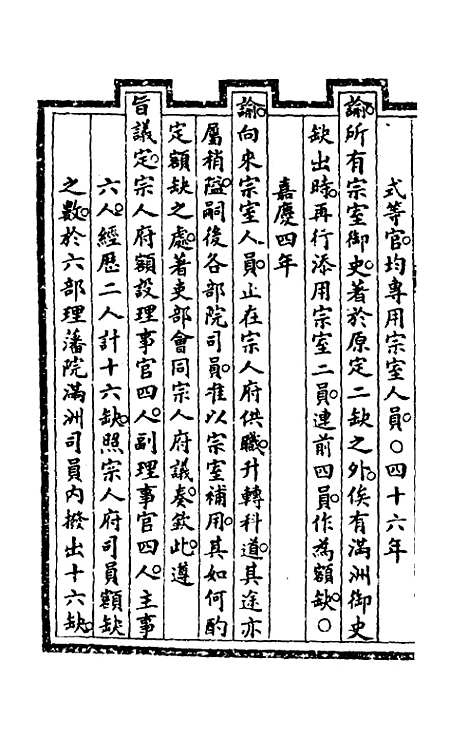 式等官。均專用宗室人員。○四十六年
諭。所有宗室御史。著於原定二缺之外。俟有滿洲御史
缺出時。再行添用宗室二員。連前四員。作為額缺。○
嘉慶四年
諭。向來宗室人員。止在宗人府供職。升轉科道。其途亦
屬稍隘。嗣後各部院司員。准以宗室補用。其如何酌
定額缺之處。著吏部會同宗人府議奏。欽此。遵
旨議定。宗人府額設理事官四人。副理事官四人。主事
六人。經歷二人。計十六缺。照宗人府司員額缺
之數。於六部理藩院滿洲司員內撥出十六缺。